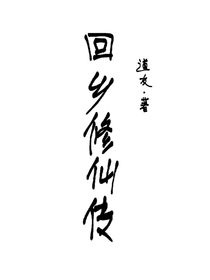 回乡修仙传
道友·著